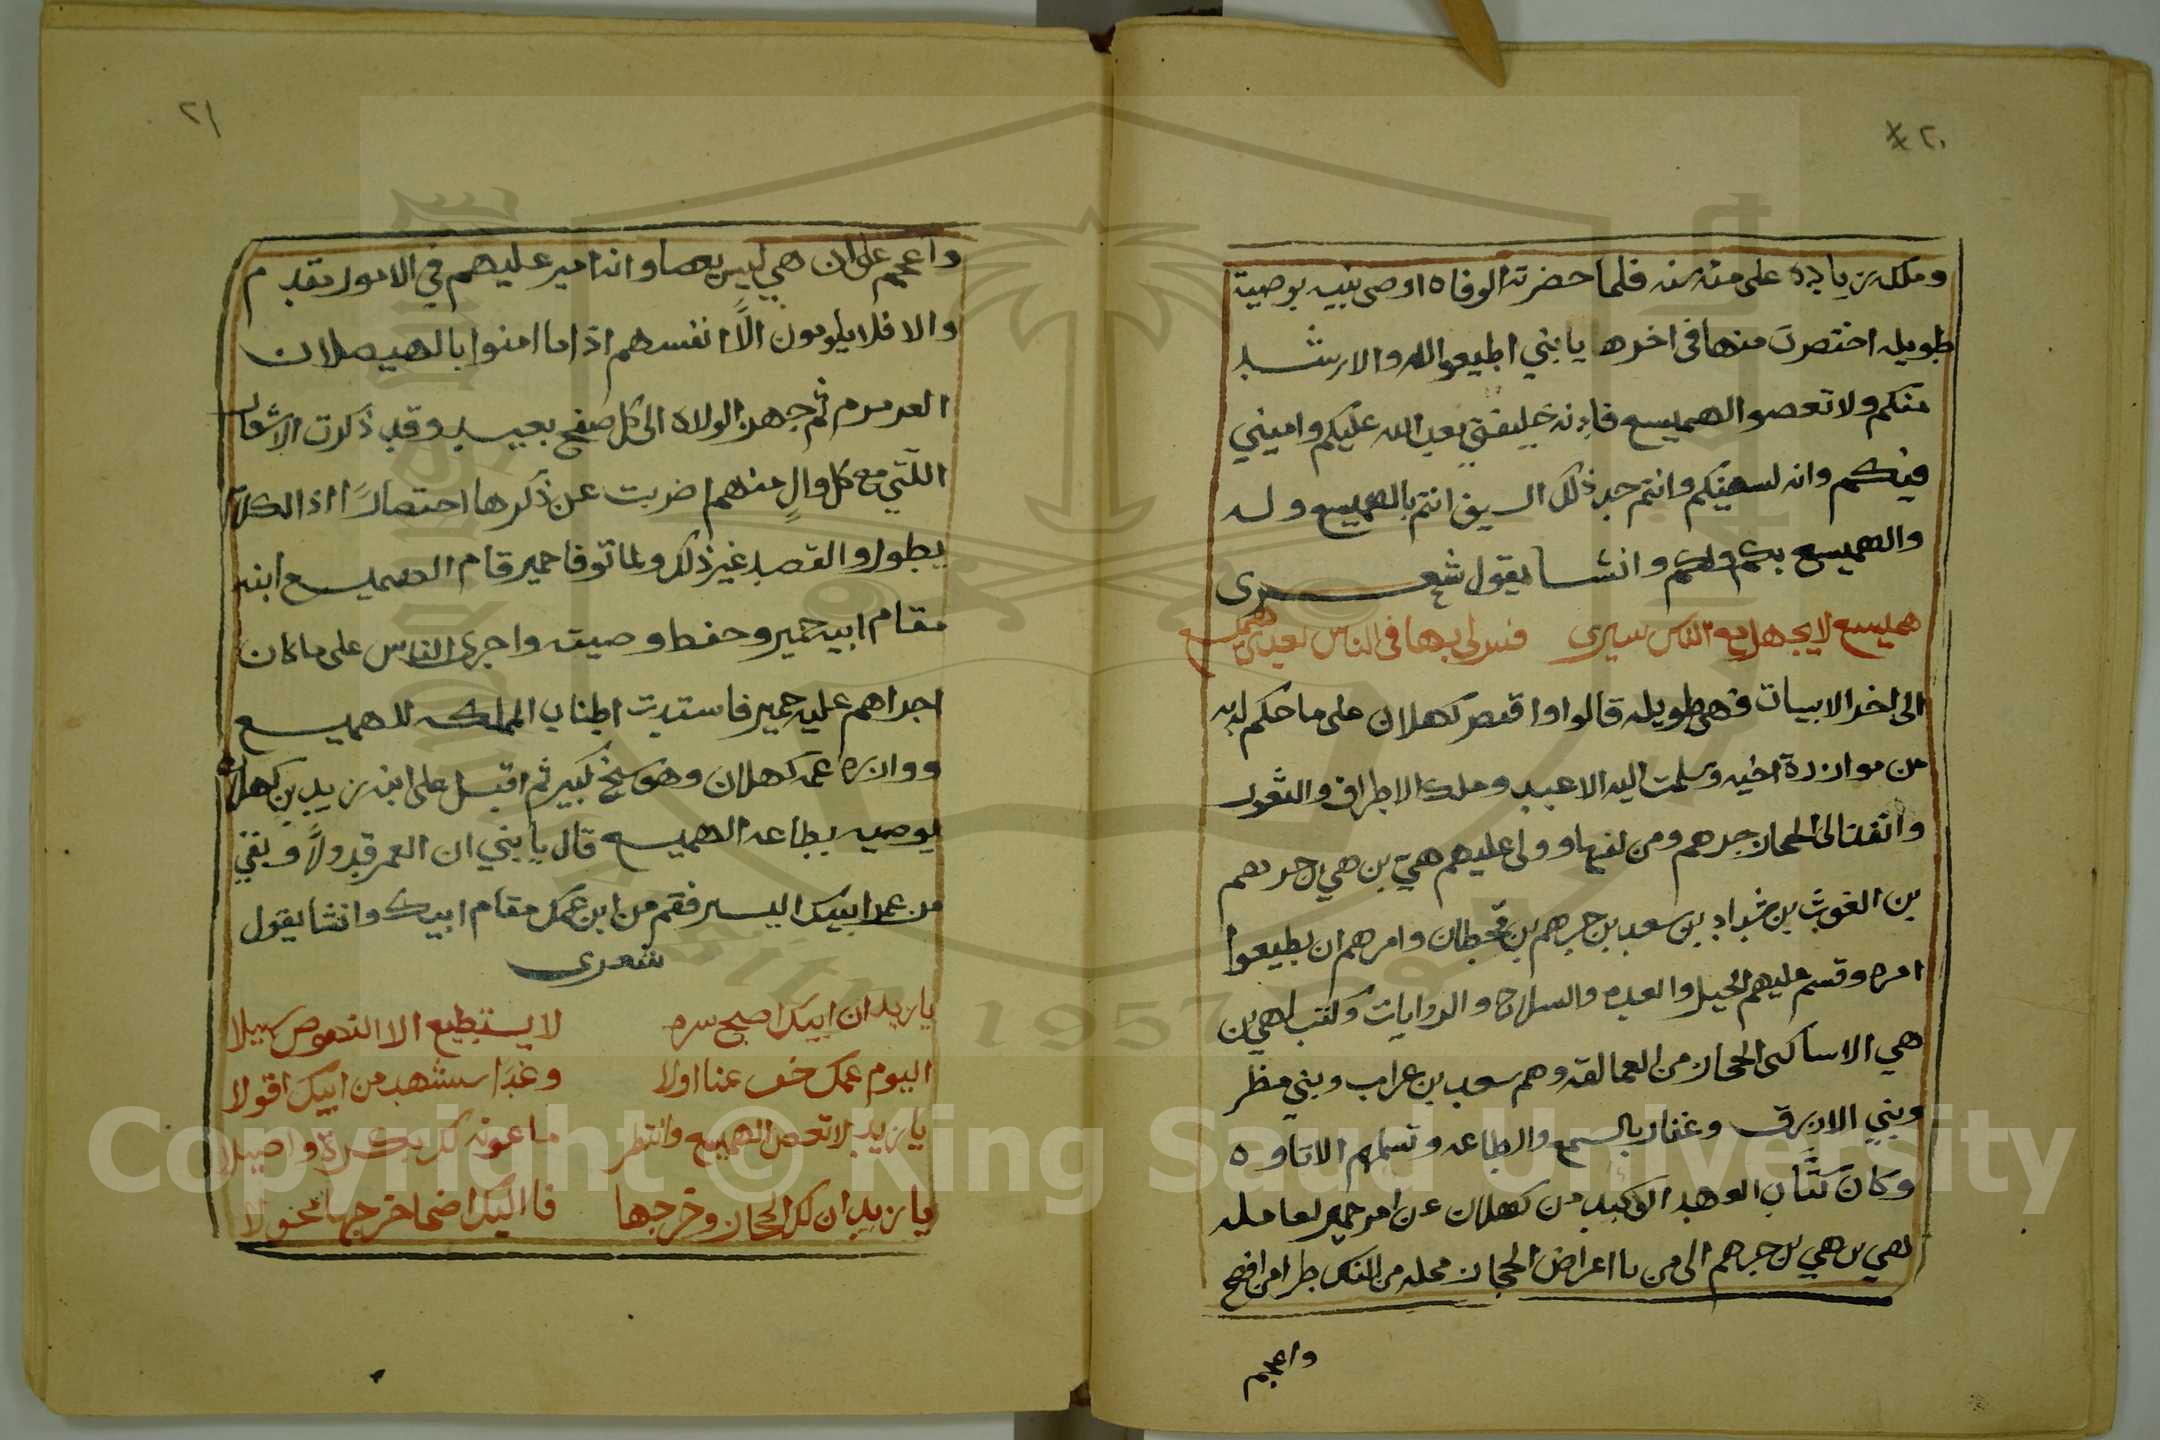 ٢٠
وملك زيادة على مئة سنه فلما حضرته الوفاه اوصى بنيه بوصية
طويله اختصرت منها فى اخرها يا بني اطيعوا الله والارشد
منكم ولا تعصوا الهميسع فانه خليفتي بعد الله عليكم واميني
فيكم وانه لسيفكم وانتم حد ذلك السيف انتم بالهميسع وله
والهميسع بكم ولكم وانشا يقول شعرى
هميسع لا يجهل مع الناس سيرى فسر لى بها فى الناس بعدى هميسع
الى اخر الابيات فهى طويله قالوا واقتصر كهلان على ما حكم له به
من موازرة اخيه وسلمت اليه الاعبد وملك الاطراف والثغور
وانفذ الى الحجاز جرهم ومن لفها وولى عليهم هي بن هي بن جرهم
بن الغوث بن شداد بن سعد بن جرهم بن قحطان وامرهم ان يطيعوا
امره وقسم عليهم الخيل والعده والسلاح والروايات وكتب لهي بن
هي الا ساكنى الحجاز من العمالقه وهم سعد بن عراب وبني مظر
وبني الازرق وغفار بالسمع والطاعه وتسلم الاتاوه
وكان كتاب العهد الوكيد من كهلان عن امر حمير لعامله
لهي بن هي بن جرهم الى من با اعراض الحجاز محله من الناس طرا من افصح
واعجم
٢١
واعجم على ان هي ليس يعصا وانه امير عليهم في الامور مقدم
والا فلا يلومون الاً انفسهم اذا ما امنوا بالهيصلان
العرمرم ثم جهز الولاه الى كل صقع بعيد وقد ذكرت الاشعار
اللتي مع كل والٍ منهم اضربت عن ذكرها احتصاراً اذ الكلام
يطول والقصد غير ذلك ولما توفا حمير قام الهميسع ابنه
مقام ابيه حمير وحفظ وصيته واجرى الناس على ما كان
اجراهم عليه حمير فاستدت اطناب المملكه للهميسع
ووازره عمه كهلان وهو شيخ كبير ثم اقبل على ابنه زيد بن كهلان
يوصيه بطاعه الهميسع قال يا بني ان العمر قد ولاً وبقي
من عمر ابيك اليسير فقم من ابن عمك مقام ابيك وانشا يقول
شعرى
يا زيد ان ابيك اصبح سره لا يستطيع الا النهوض سبيلا
اليوم عمك خف عنا اولا وغداً ستشهد من ابيك اقولا
يا زيد لا تعص الهميسع وانتظر ماعونه لك بكرة واصيلا
يا زيد ان لك الحجاز وخرجها فا اليك اضحا خرجها محمولا
Copyright © King Saud University
1957